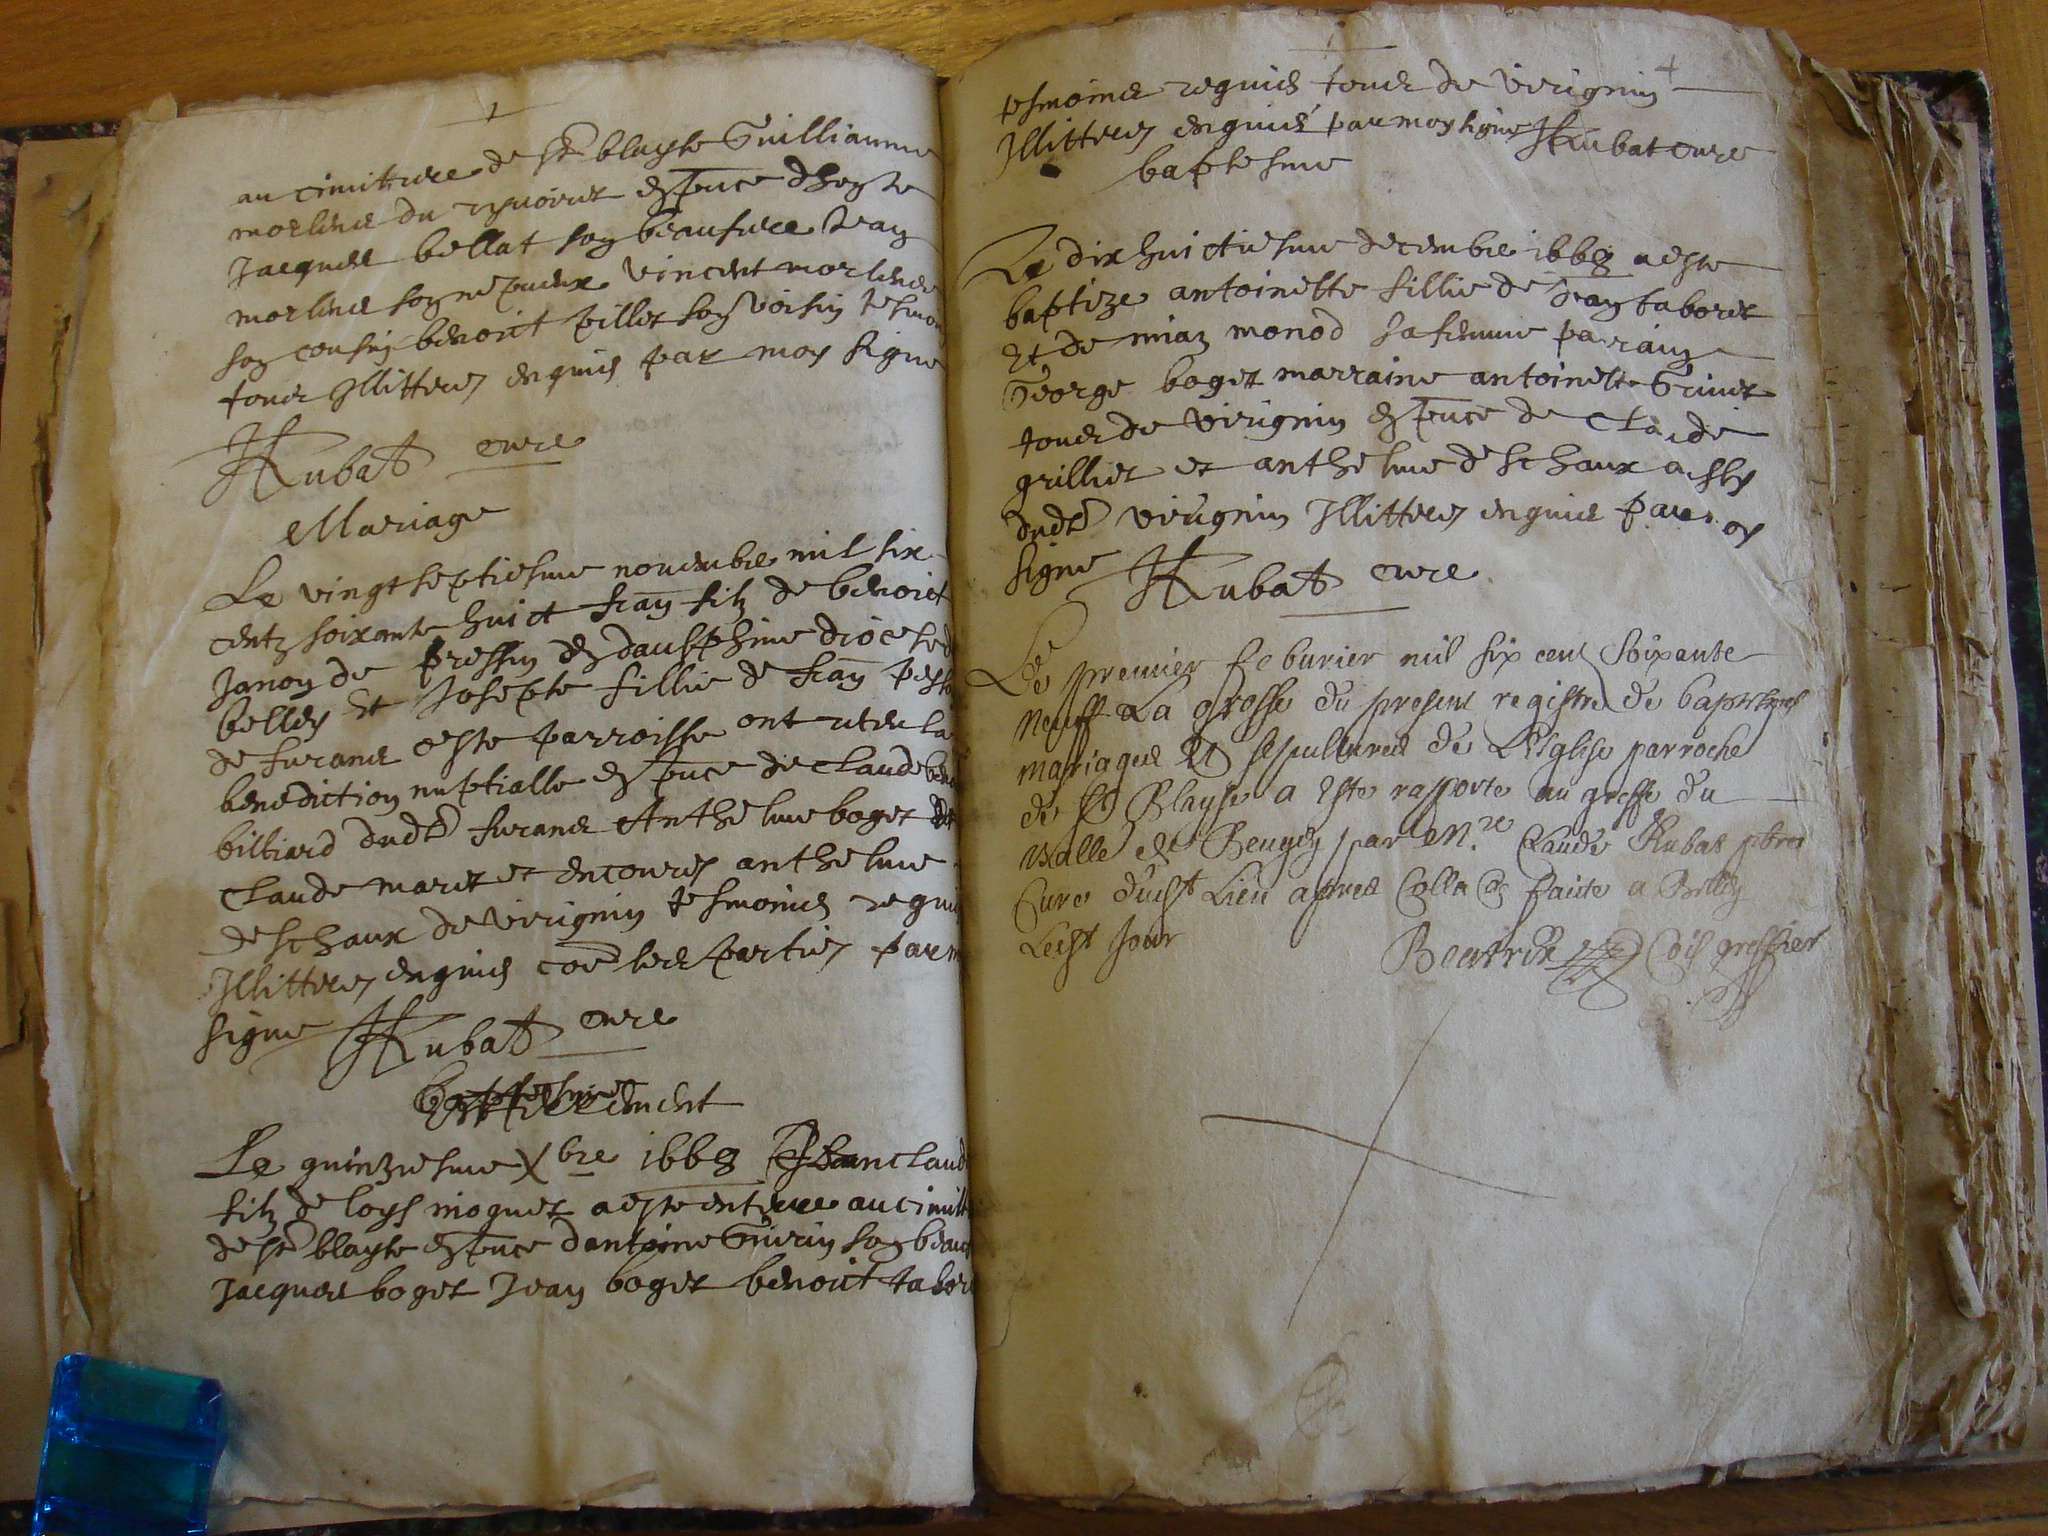 au cimittiere de st blayse Guilliaume
morliner du rysoirt espnce dheyte
Jacques bellat soy beaufrere Jeay
morliner soy nepueux vincent morliner
soy cousiy benoict pillet soy voisin tesmoi
tous Jllitteres enquis par moy signe
Rubat cure
Mariage
Le vingt septiesme novembre mil six
centz soixante huict fran filz de benoict
Janoy de pressin ey dausphine diocese de
belley et Josepte fillie de fran
de furans ceste parroisse ont receu la
benediction nuptialle ey pnce de Claude
billiard dudt furans Anthelme boget
Claude maret et encoures anthelme
deschaux de virignin tesmoins requis
Jllitteres enquis coe les parties par m
signe Rubat cure
Enterrement
Le quinziesme Xbre 1668 Jean claude
filz de loys moguet a este enterre au cimitt
de st blayse ey pnce dantoine Guerin soy beau
Jacques boget Jeay boget benoict tabore
tesmoins requis tous de virignin
Jllitteres enquis par moy signe Rubat cure
baptesme
Le dix huictiesme decembre 1668 a este
baptize antoinette fillie de Jeay taboret
Et de miaz monod sa femme parraing
George boget marraine antoinette Grinet
tous de virignin ey pnce de Claude
grilliet et anthelme deschaux
dudt virignin Jllitteres enquis par moy
signe Rubat cure
Le premier feburier mil six cent soixante
neuff La grosse du present registre de baptesmes
mariages Et sepultures de L'Eglise parroche
de St Blayse a Este rapporte au greffe du
Balle de Beugey par Mre Claude Rubat pbre
Cure dudt Lieu apres Colla on faite a Belley
Ledt Jour
Beatrix Cois greffier